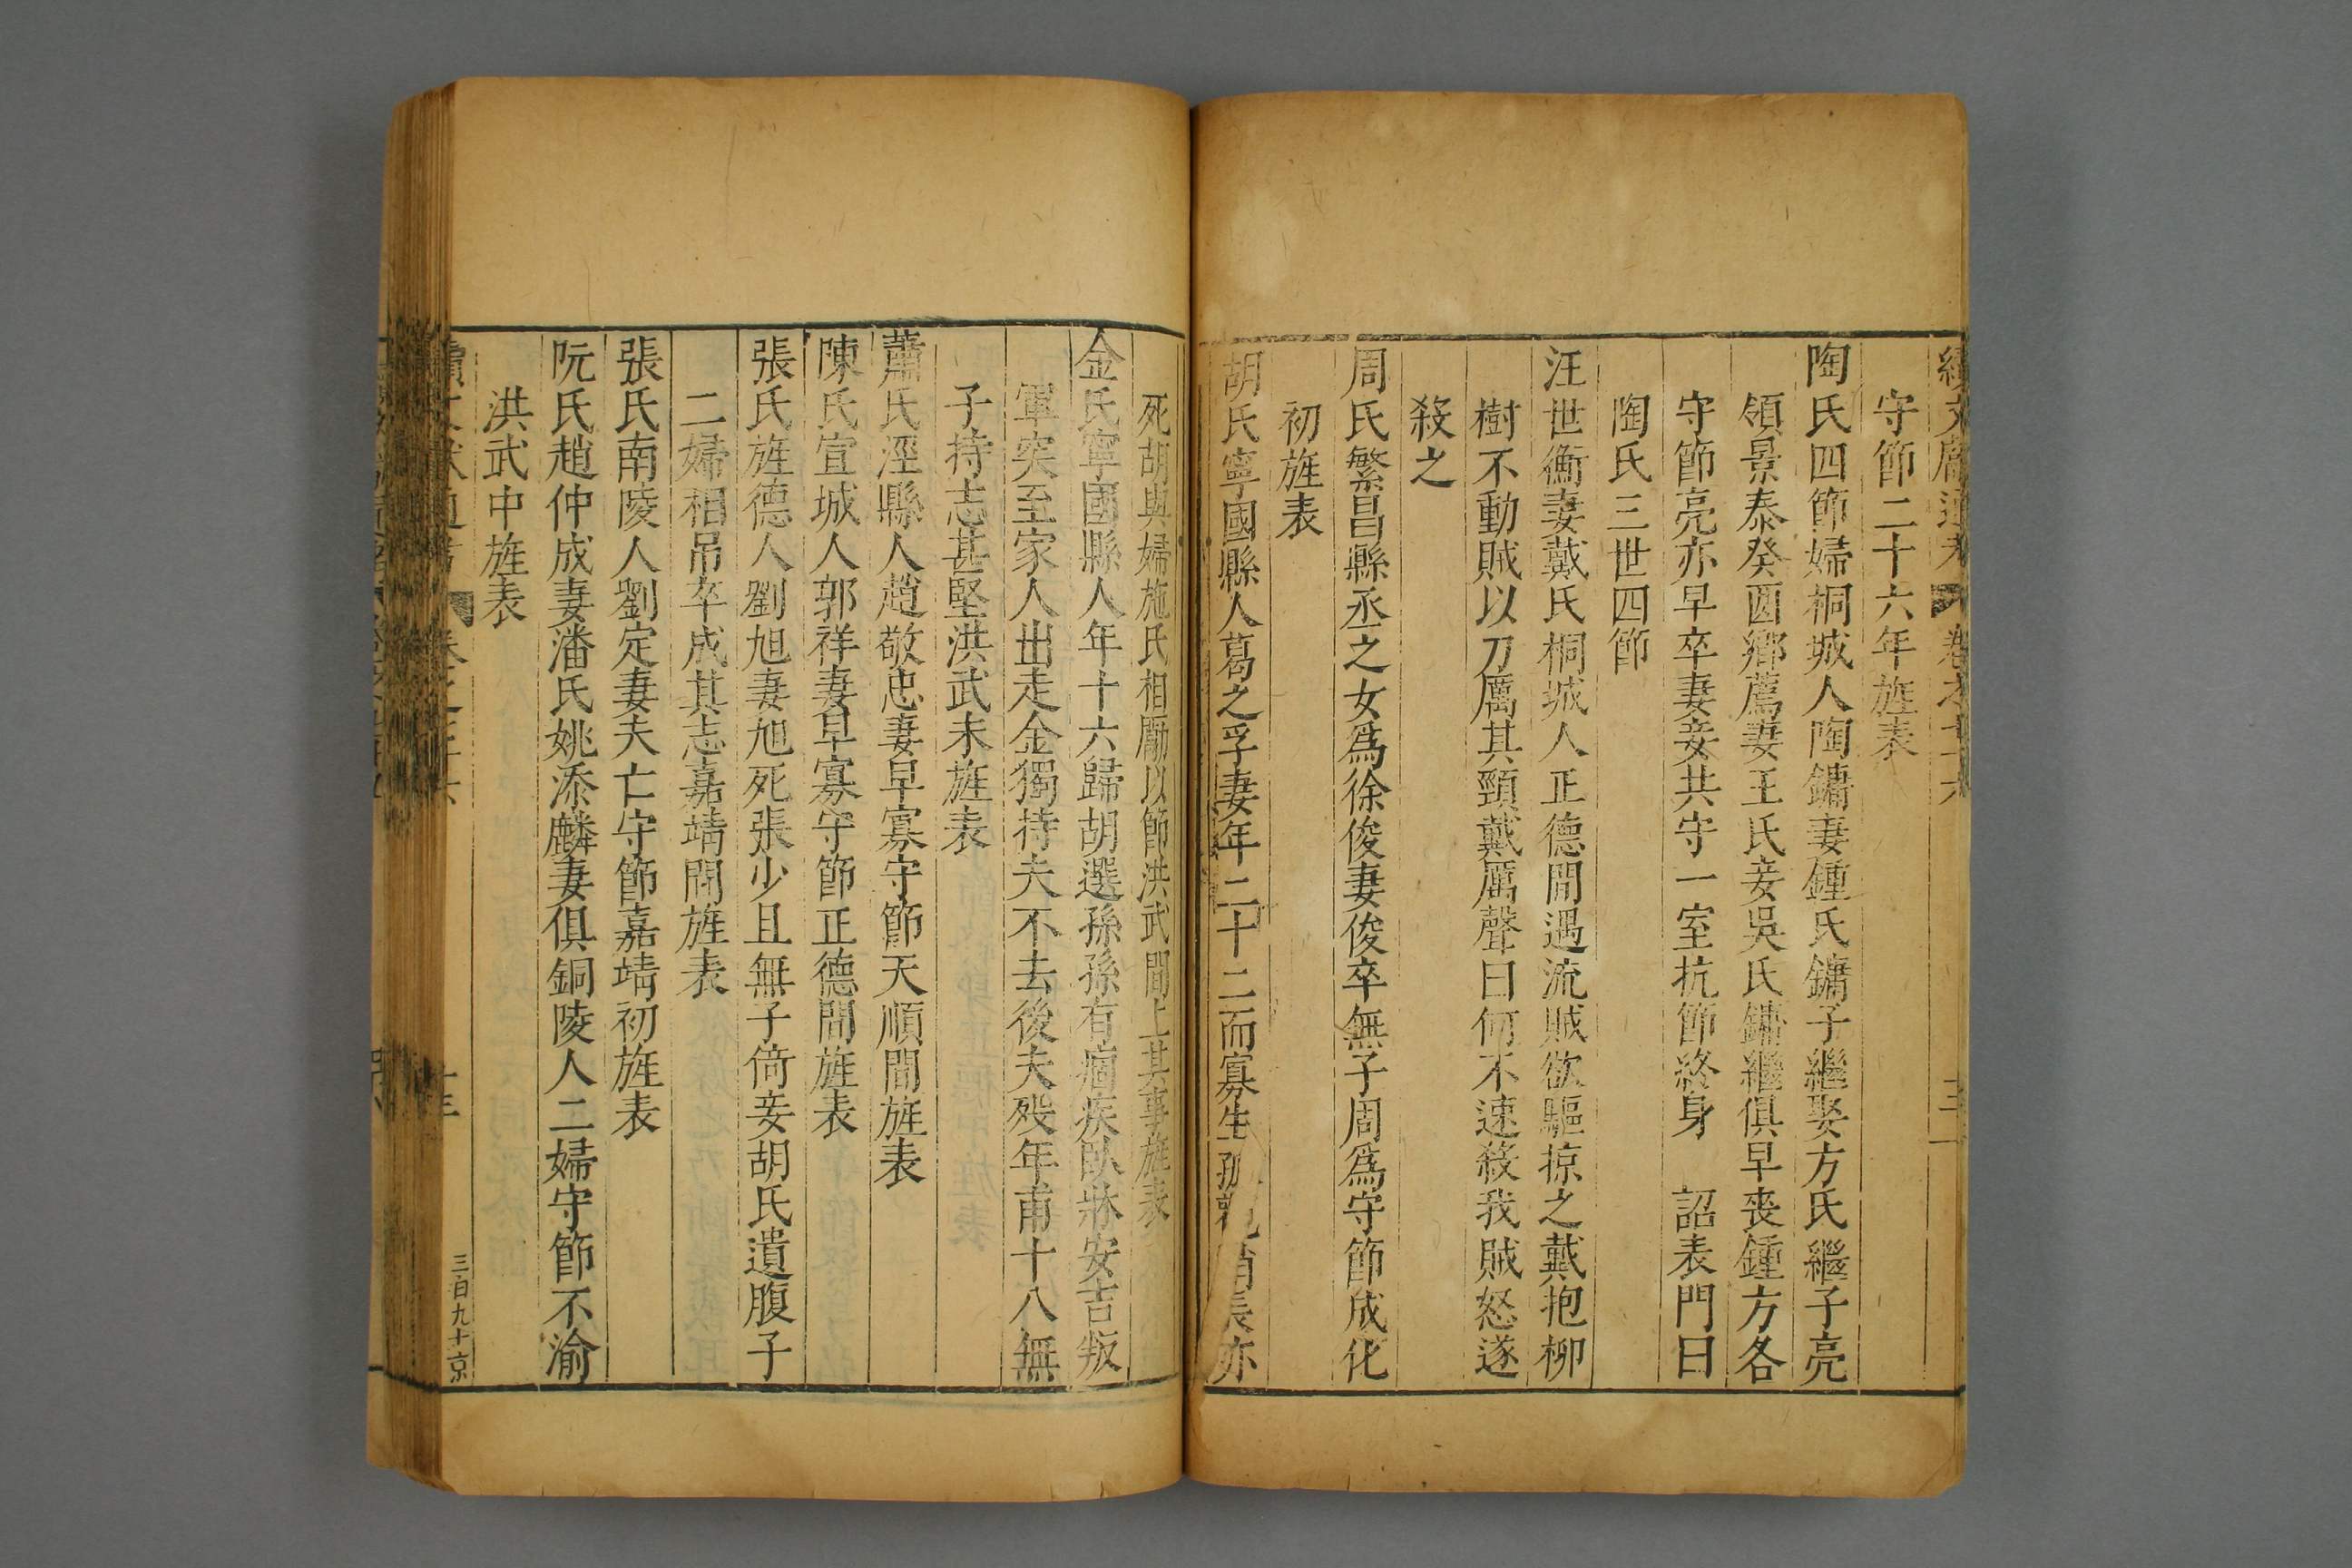 續文獻通考 卷之七十六
守節二十六年旌表
陶氏四節婦桐城人陶鏞妻鍾氏鏞子繼娶方氏繼子亮
領景泰癸酉鄉薦妻王氏妾吳氏鏞繼俱早喪鍾方各
守節亮亦早卒妻妾共守一室抗節終身 詔表門曰
陶氏三世四節
汪世衡妻戴氏桐城人正德間遇流賊欲驅掠之戴抱柳
樹不動賊以刀厲其頸戴厲聲曰何不速殺我賊怒遂
殺之
周氏繁昌縣丞之女為徐俊妻俊卒無子周為守節成化
初旌表
胡氏寧國縣人葛之孚妻年二十二而寡生孤
長亦
死胡與婦施氏相勵以節洪武間上其事旌表
金氏寧國縣人年十六歸胡選孫孫有痼疾臥牀安吉叛
軍突至家人出走金獨持夫不去後夫殁年甫十八無
子持志甚堅洪武末旌表
蕭氏涇縣人趙敬忠妻早寡守節天順間旌表
陳氏宣城人郭祥妻早寡守節正德間旌表
張氏旌德人劉旭妻旭死張少且無子倚妾胡氏遺腹子
二婦相吊卒成其志嘉靖間旌表
張氏南陵人劉定妻夫亡守節嘉靖初旌表
阮氏趙仲成妻潘氏姚添麟妻俱銅陵人二婦守節不渝
洪武中旌表
十三
三百九十京